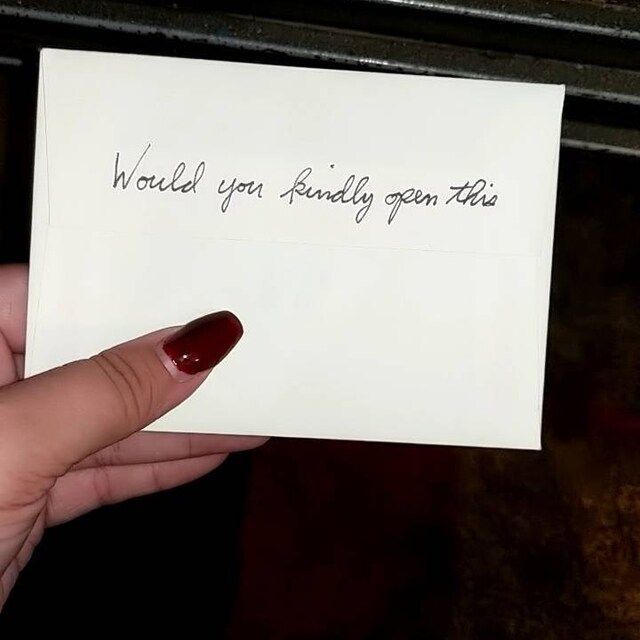 Would you kindly open this